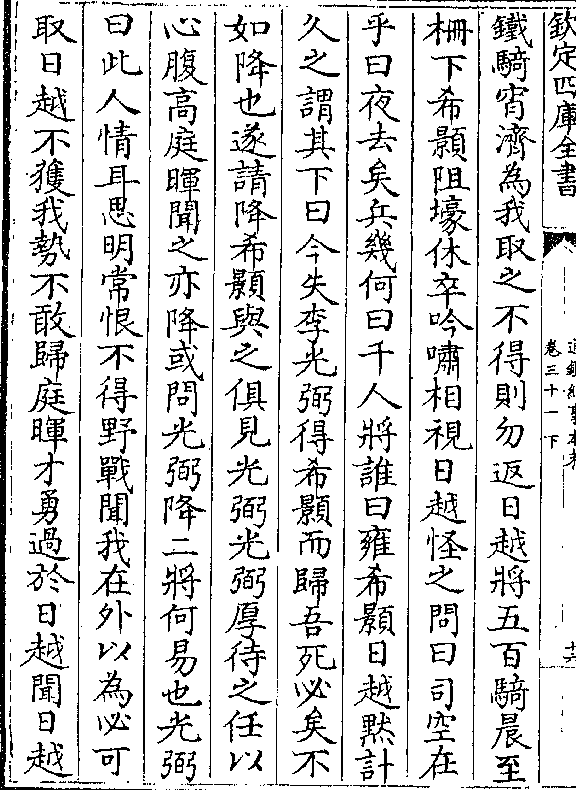 欽定四庫全書
卷三十一下
鐵騎宵濟為我取之不得則勿返日越將五百騎晨至
柵下希顥阻壕休卒吟嘯相視日越怪之問曰司空在
乎曰夜去矣兵幾何曰千人將誰曰雍希顥日越黙計
久之謂其下曰今失李光弼得希顥而歸吾死必矣不
如降也遂請降希顥與之俱見光弼光弼厚待之任以
心腹高庭暉聞之亦降或問光弼降二將何易也光弼
曰此人情耳思明常恨不得野戰聞我在外以為必可
取日越不獲我勢不敢歸庭暉才勇過於日越聞日越